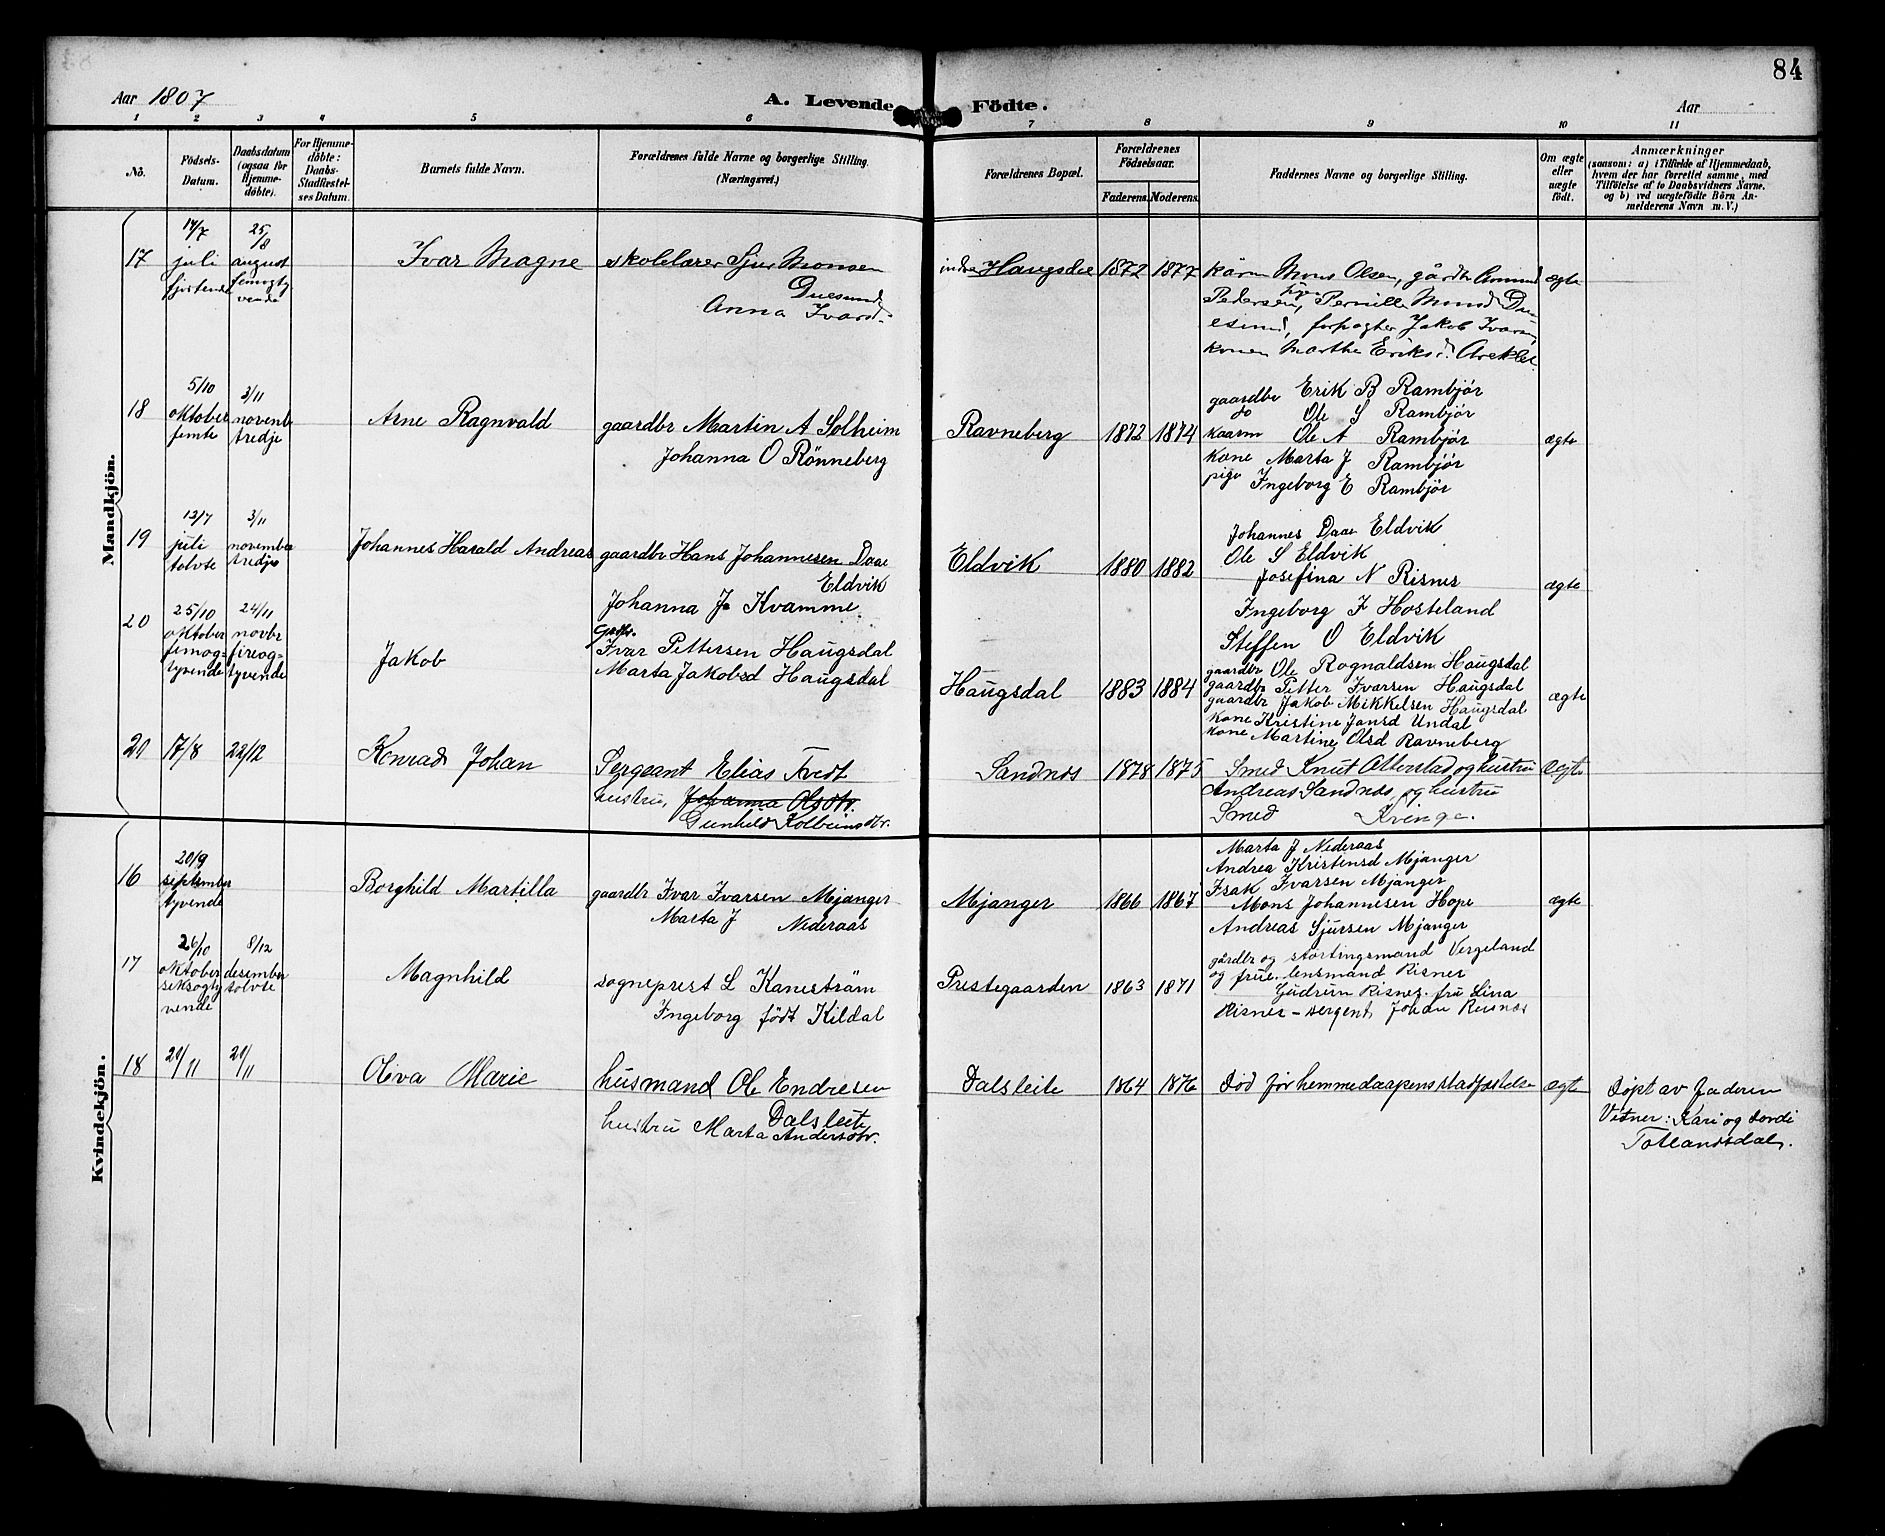 84
Aar 1807
A. Levende Födte.
Aar
1 2 3 4 5 6 7 8 9 10 11
No.
Födsels-
Datum.
Daabsdatum
(ogsaa for
Hjemme-
döbte).
For Hjemme-
döbte:
Daabs-
Stadfæstel-
ses Datum.
Barnets fulde Navn.
Forældrenes fulde Navne og borgerlige Stilling.
(Næringsvei.)
Forældrenes Bopæl.
Forældrenes
Födselsaar.
Faderens. Moderens.
Faddernes Navne og borgerlige Stilling.
Om ægte
eller
uægte
født.
Anmærkninger
(saasom: a) i Tilfælde af Hjemmedaab,
hvem der har forrettet samme, med
Tilföielse af to Daabsvidners Navne,
og b) ved uægtefödte Börn An-
melderens Navn m.V.)
Mandkjön.
17
14/7
juli
fjortende
25/8
august
femogty
vende
Ivar Magne
skolelærer Sjur Monsen
Duesund
Anna Ivarsd.
indre Haugsdal
1872 1877
kårm Mons Olsen, gårdbr Amund
Pedersen, pige Pernille Monsd Du-
esund, forpagter Jakob Ivarsen
konen Marthe Eriksd.
ægte
18
5/10
oktober
femte
3/11
novemb
tredje
Arne Ragnvald
gaardbr Martin A Solheim
Johanna O Rönneberg
Ravneberg
1872 1874
gaardbr Erik B Rambjör
do Ole S Rambjör
Kaarm Ole A Rambjör
Kone Marta J Rambjör
pige Ingeborg E Rambjör
ægte
19
12/7
juli
tolvte
3/11
november
tredje
Johannes Harald Andreas
gaardbr Hans Johannesen Daae
Eldvik
Johanna J Kvamme
Eldvik
1880 1882
Johannes Daae Eldvik
Ole S Eldvik
Josefina N Risnes
Ingeborg J Hosteland
Steffen O Eldvik
ægte
20
25/10
oktober
femog-
tyvende
24/11
novbr
fireog-
tyvende
Jakob
Gaardbr.
Ivar Pettersen Haugsdal
Marta Jakobsd Haugsdal
Haugsdal
1883 1884
gaardbr Ole Rognaldsen Haugsdal
gaardbr Petter Ivarsen Haugsdal
gaardbr Jakob Mikkelsen Haugsdal
Kone Kristine Jansd Undal
Kone Martine Olsd Ravneberg
ægte
21
17/8
22/12
Konrad Johan
Sergeant Elias Tvedt
hustru, Johanna Olsdtr.
Gunhild Kolbeinsdtr.
Sandnæs
1878 1875
Smed Knut Otterstad og hustru
Andreas Sandnæs og hustru
Smed Kvinge.
Ægte
Kvindekjön.
16
20/9
september
tyvende
Borghild Martilla
gaardbr Ivar Ivarsen Mjanger
Marta J Nederaas
Mjanger
1866 1867
Marta J Nederaas
Andrea Kristensd Mjanger
Isak Ivarsen Mjanger
Mons Johannesen Hope
Andreas Sjursen Mjanger
ægte
17
26/10
oktober
seksogty
vende
8/12
desember
tolvte
Magnhild
sogneprest L Kaneström
Ingeborg född Kildal
Prestegaarden
1863 1871
gårdbr og stortingsmand Vergeland
og frue. lensmand Risnes
Gudrun Risnes. fru Lina
Risnes - sergent Johan Risnæs
18
20/11
20/11
Oliva Marie
husmand Ole Endresen
Dalsleite
hustru Marta Andersdtr.
Dalsleite
1864 1876
Död för hemmedaapens stadfæstelse
ægte
Döpt av faderen
Vitner: Kari og Dordi
Totlandsdal.